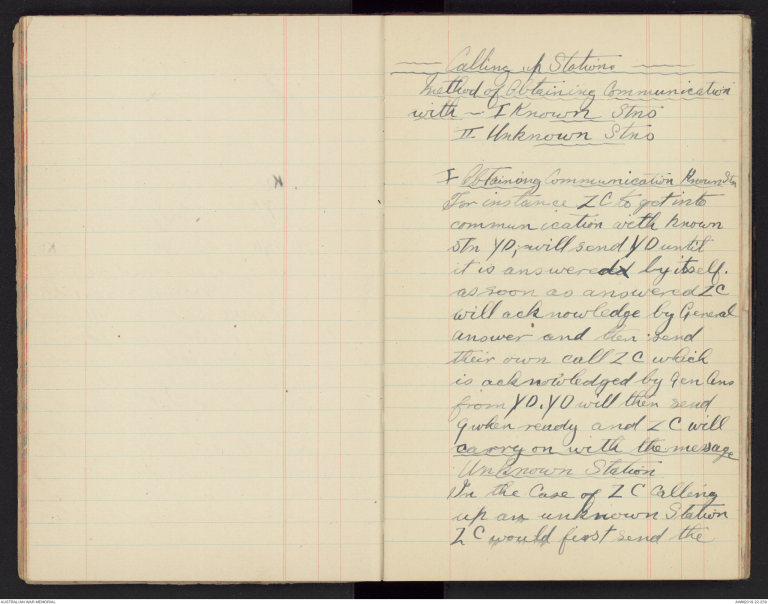 Calling up Stations
Method of Obtaining Communication
with - I Known Stns
II Unknown Stns
I Obtaining Communication Known Stn
For instance ZC to get into
communication with known
stn YD, will send YD until
it is answered by itself.
as soon as answered ZC
will acknowledge by General
answer and then send
their own call ZC which
is acknowledged by Gen Ans
from YD. YD will then send
G when ready and ZC will
carry on with the message
Unknown Station
In the Case of ZC Calling
up an unknown Station
ZC would first send the
AUSTRALIAN WAR MEMORIAL